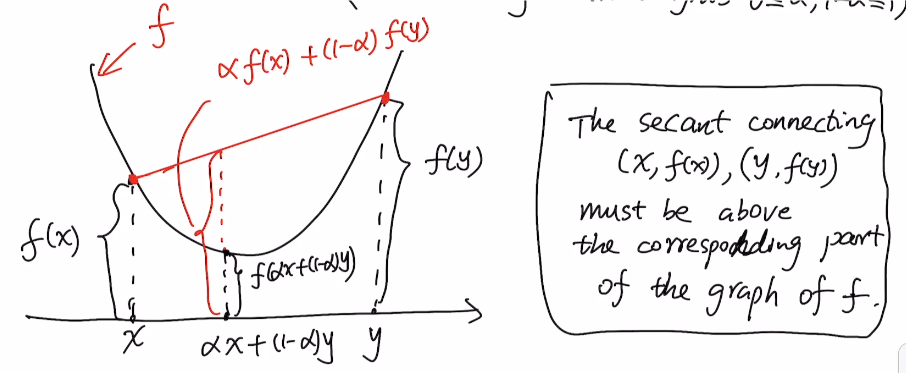 f
αf(x)+(1-α)f(y)
f(y)
f(x)
f(αx+(1-α)y)
x
αx+(1-α)y
y
The secant connecting
(x,f(x)),(y,f(y))
must be above
the corresponding part
of the graph of f.